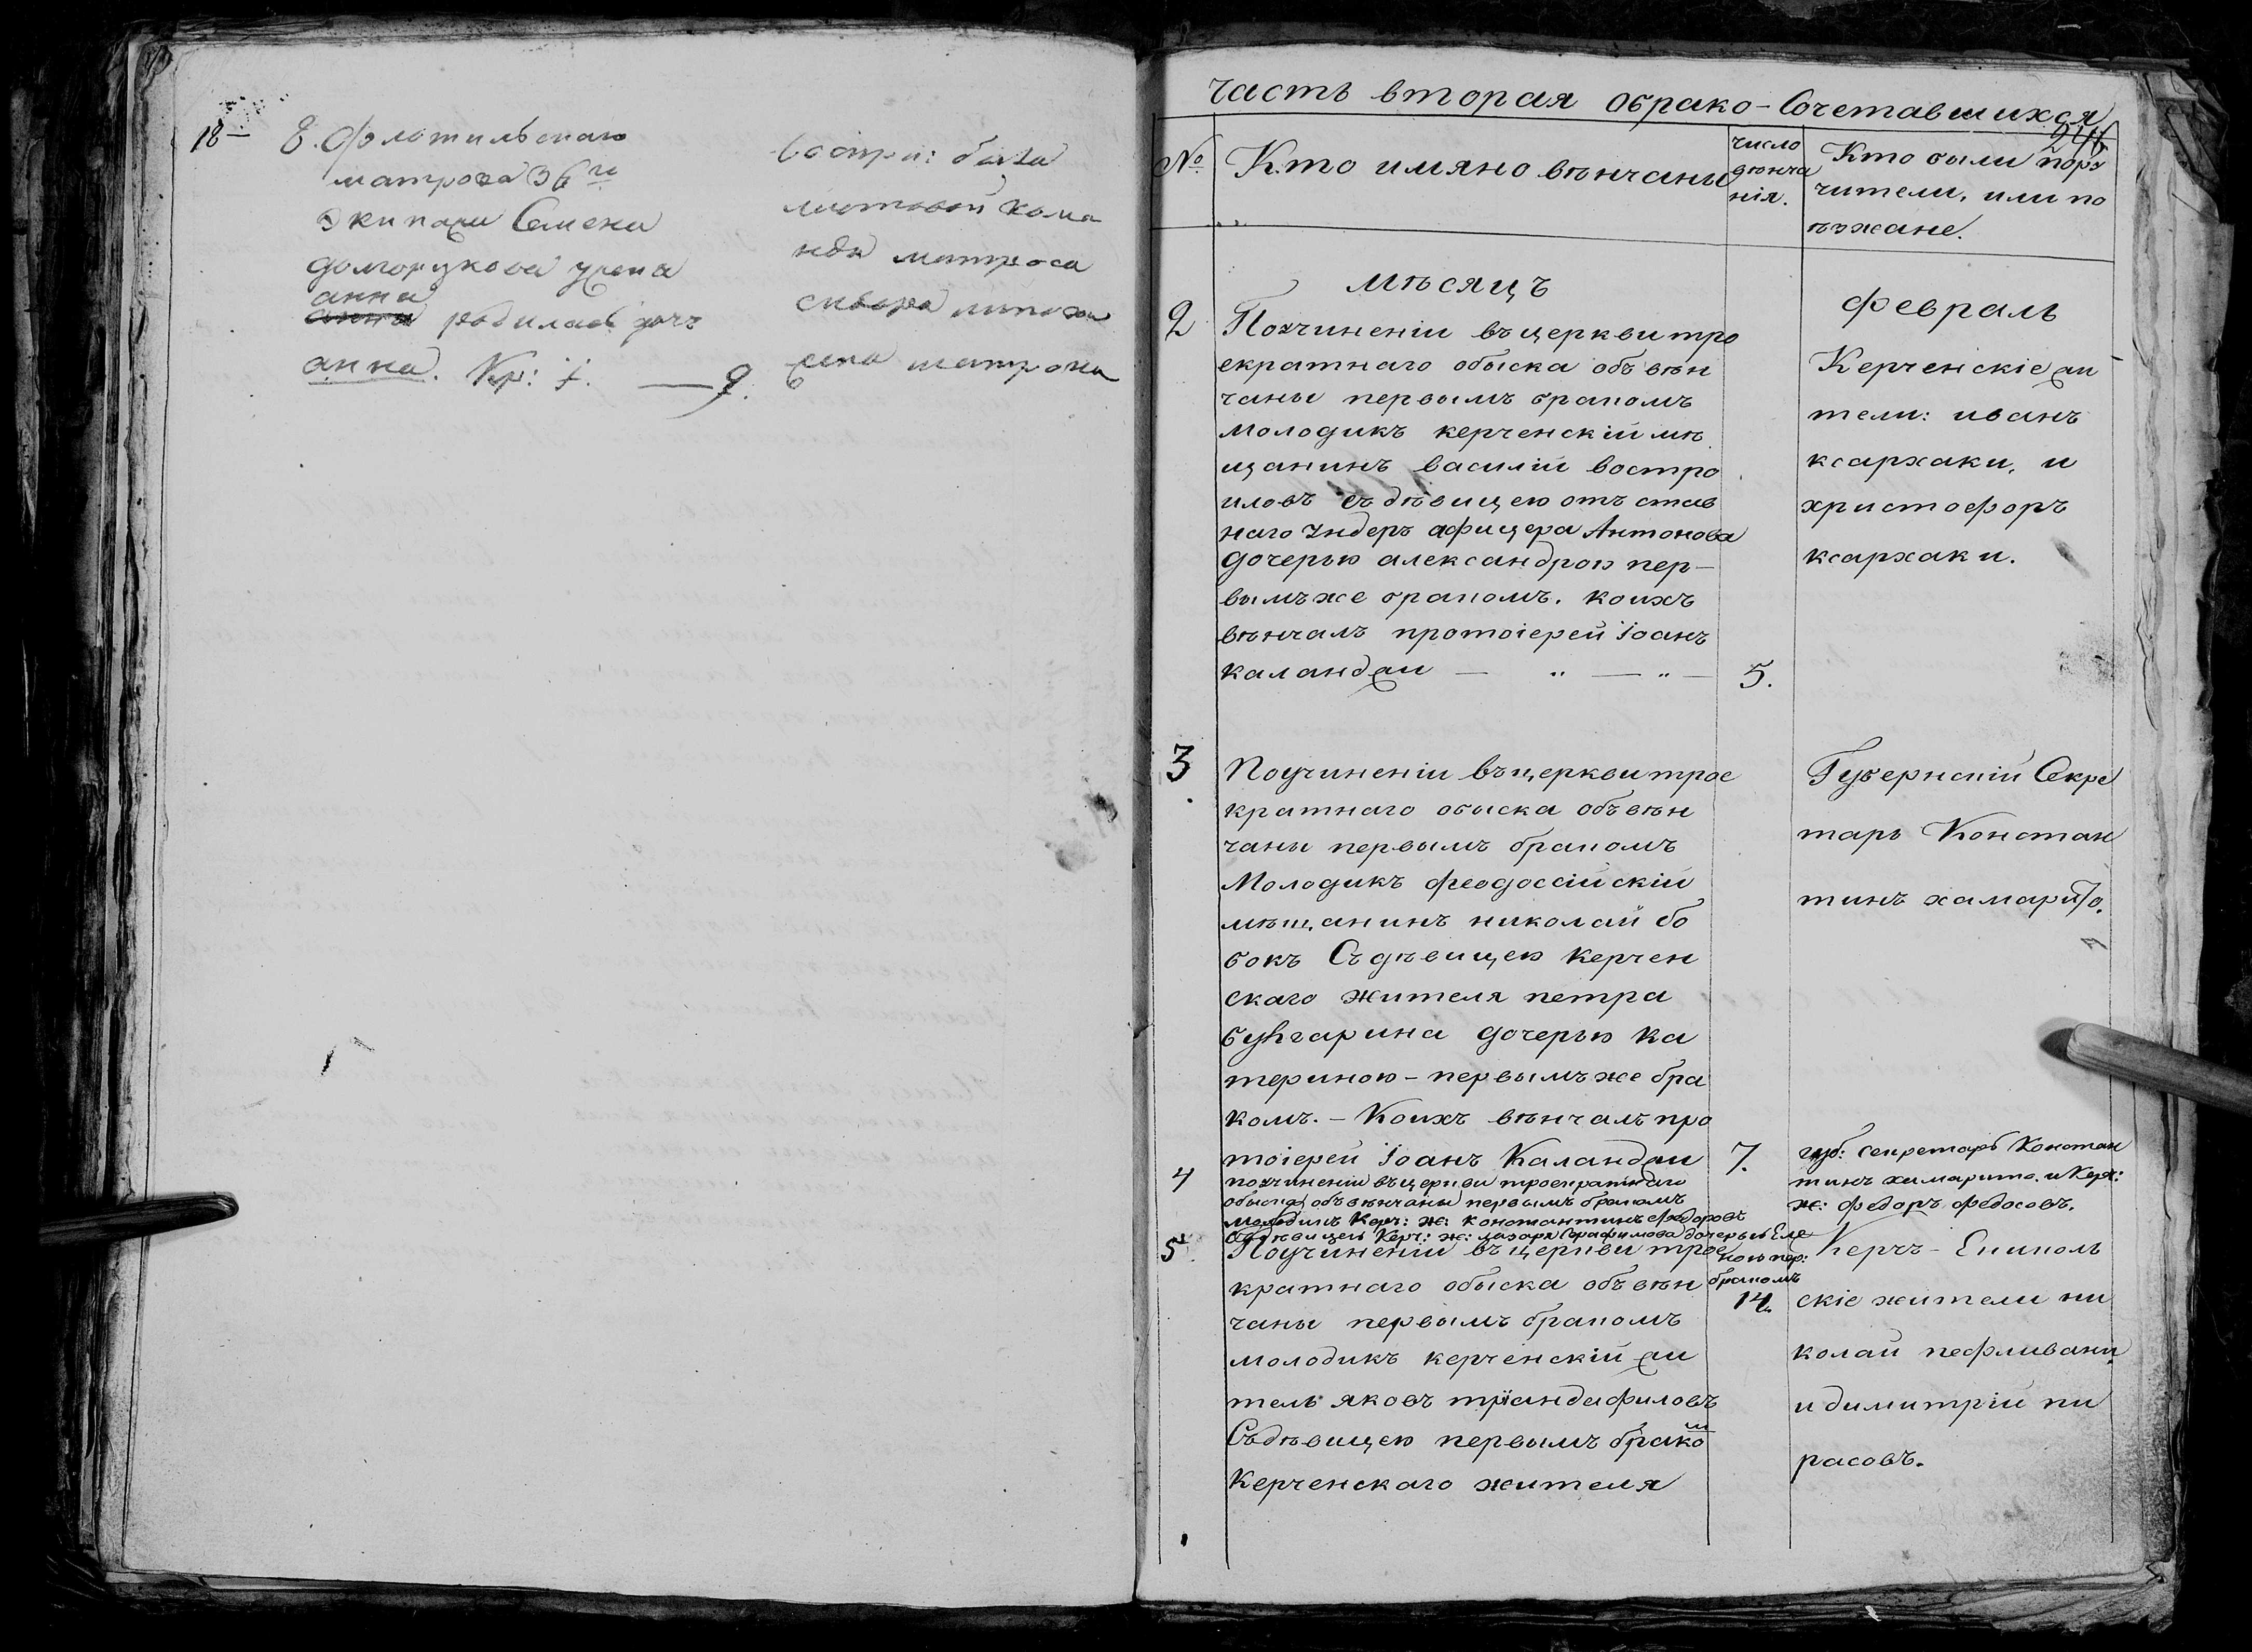 18 — 8. Флотильскаго
матроса 36го
Экипажи Семена
долгорукова жена
анна
родилась дочь
анна. Кр: і. — 9.
воспри: была
ластовой кома
нды матроса
жена матрона
Часть вторая обрако-Сочетавшихся
246
№ Кто имяно вѣнчаны
число вѣнча нія.
Кто были пору
чители, или по
ѣзжане.
мѣсяцъ
февраль
2 Поучиненіи въ церкви тро
екратнаго обыска объ вѣн
чаны первымъ бракомъ
молодикъ керченскій мѣ
щанинъ василій востро
иловъ съ дѣвицею отъ став
наго Ундеръ афицера Антонова
дочерью александрою пер-
вымъ же бракомъ. коихъ
вѣнчалъ протоіерей іоанъ
каланджи — „ — „ — 5.
Керченскіе жи
тели: иванъ
ксархаки, и
христофоръ
ксархаки.
3 Поучиненіи въ церкви трое
кратнаго обыска объ вѣн
чаны первымъ бракомъ
Молодикъ феодоссійскій
мѣщанинъ николай бо
бокъ Съ дѣвицею керчен
скаго жителя петра
булгарина дочерью ка
териною - первымъ же бра
комъ. - Коихъ вѣнчалъ про
тоіерей іоанъ Каланджи 7.
Губернскій Секре
тарь Констан
тинъ хамарито.
4 поучиненіи въ церкви троекратнаго
обыска объ вѣнчаны первымъ бракомъ
молодикъ Керч: ж: константинъ федоровъ
съ дѣвицею Керч: ж: лазаря Серафимова дочерью Еле
ною пер:
бракомъ
14.
губ: секретарь Констан
тинъ хамарито. и Керч:
ж: федоръ федосовъ.
5 Поучиненіи въ церкви трое
кратнаго обыска объ вѣн
чаны первымъ бракомъ
молодикъ керченскій жи
тель яковъ тріандафиловъ
Съ дѣвицею первымъ бракомъ
Керченскаго жителя
Керчъ - Ениколь
скіе жители ни
колай пефливани,
и димитрій пи
расовъ.